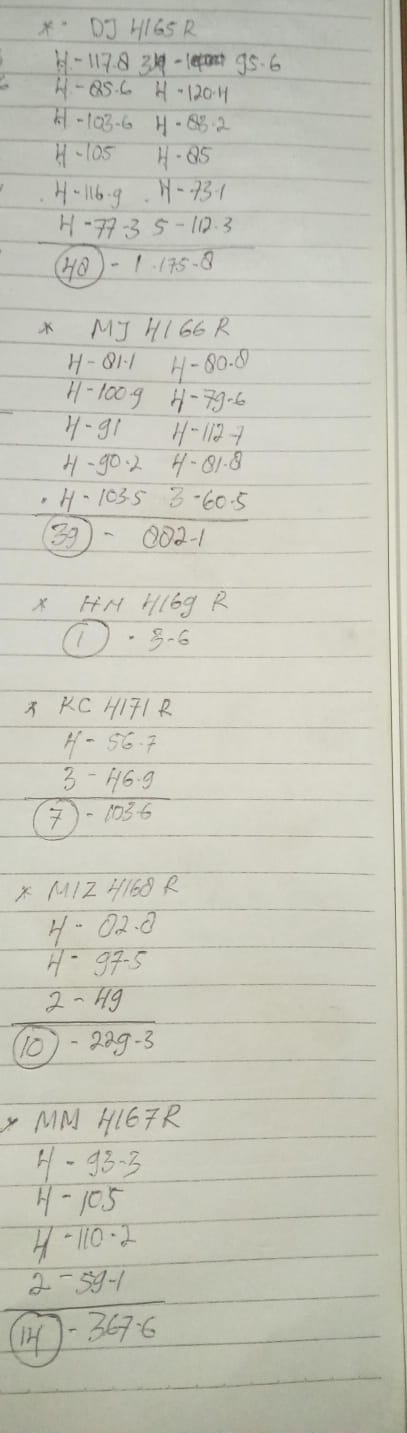 * DJ 4165 R
4-117.8 3 - 95.6
4-85.6 4-120.4
4-103.6 4-83.2
4-105 4-85
4-116.9 4-73.1
4-77-3 5-112.3
48 - 1.175-8
* MJ 4166 R
4-81.1 4-80.8
4-100.9 4-79-6
4-91 4-112.7
4-90.2 4-81.8
4-103.5 3-60.5
39 - 882-1
* HM 4169 R
1 - 3-6
* KC 4171 R
4-56.7
3-46.9
7 - 103.6
* MIZ 4168 R
4-82.8
4-97-5
2-49
10 - 229-3
* MM 4167 R
4-93-3
4-105
4-110-2
2-59-1
14 - 367-6